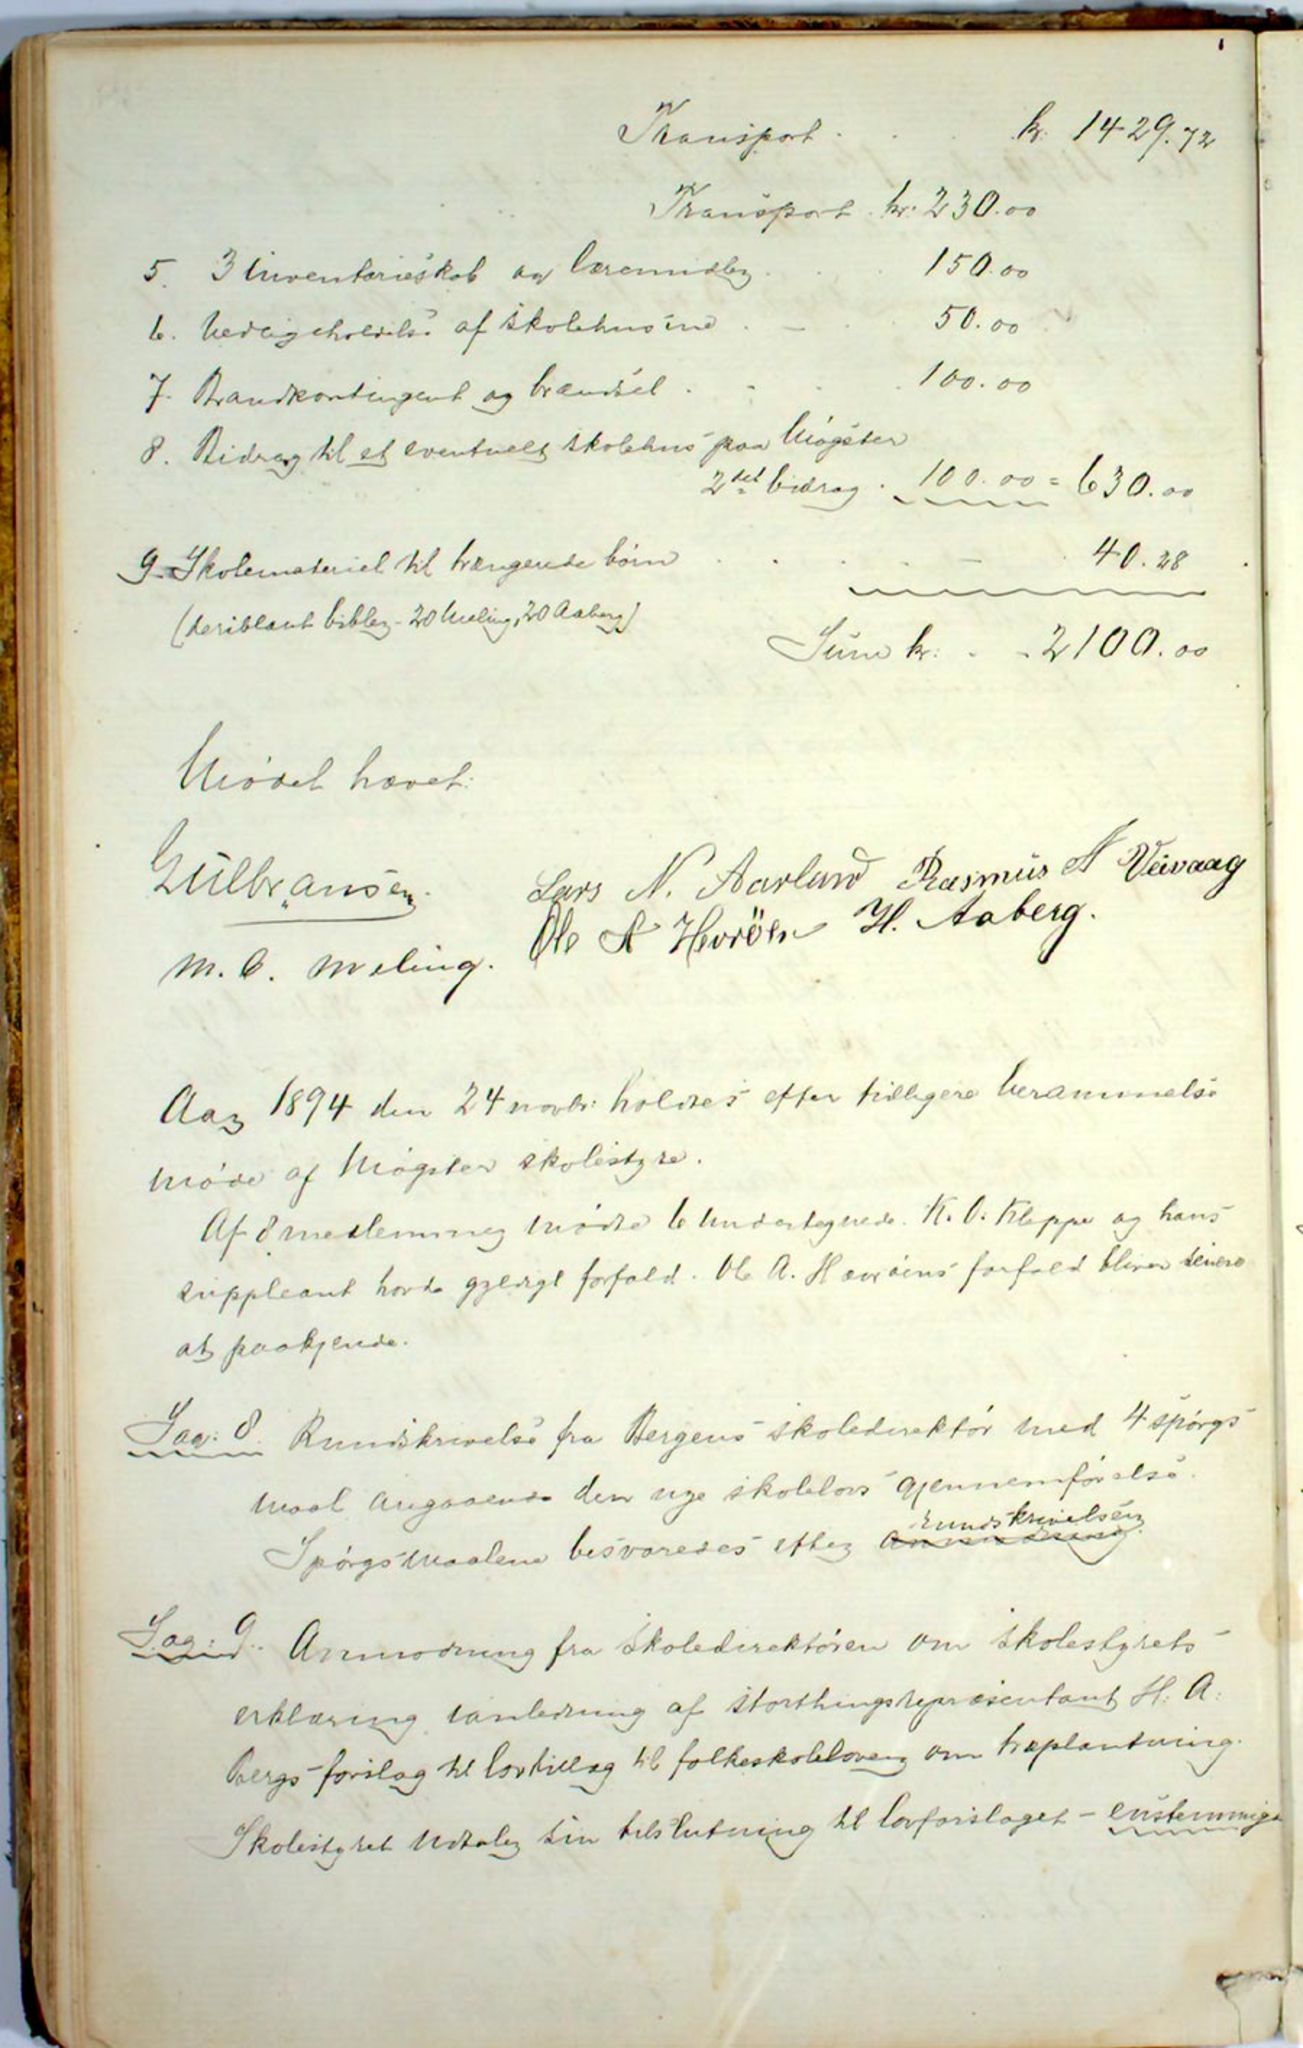 Transport . . . kr. 1429.72
Transport . kr. 230.00
5. 3 inventarieskab og læremidler . . . 150.00
6. Vedligeholdelse af skolehusene . - . 50.00
7. Brandkontingent og brændsel . - . . 100.00
8. Bidrag til et eventuelt skolehus paa Møgster
2det bidrag . 100.00 = 630.00
9. Skolemateriel til trængende børn . . . - . 40.28
(deriblant bibler - 20 Meling, 20 Aaberg)
Sum kr: . . 2100.00
Mødet hævet.
Gulbransen. Lars N. Aarland Rasmus A Veivaag
M. O. Meling. Ole A Hevrøen H. Aaberg.
Aar 1894 den 24 novbr: holdtes efter tidligere berammelse
møde af Møgster skolestyre.
Af 8 medlemmer mødte 6 undertegnede. K. O. Kleppe og hans
suppleant havde gyldigt forfald. Ole A. Hævrøens forfald bliver senere
at paakjende.
Sag: 8. Rundskrivelse fra Bergens skoledirektør med 4 spørgs
maal angaaende den nye skolelovs gjennemførelse.
rundskrivelsen
Spørgsmaalene besvaredes efter anmodning.
Sag: 9. Anmodning fra skoledirektøren om skolestyrets
erklæring i anledning af storthingsrepræsentant H. A.
Bergs forslag til lovtillæg til folkeskoleloven om træplantning.
Skolestyret udtaler sin tilslutning til lovforslaget - enstemmige